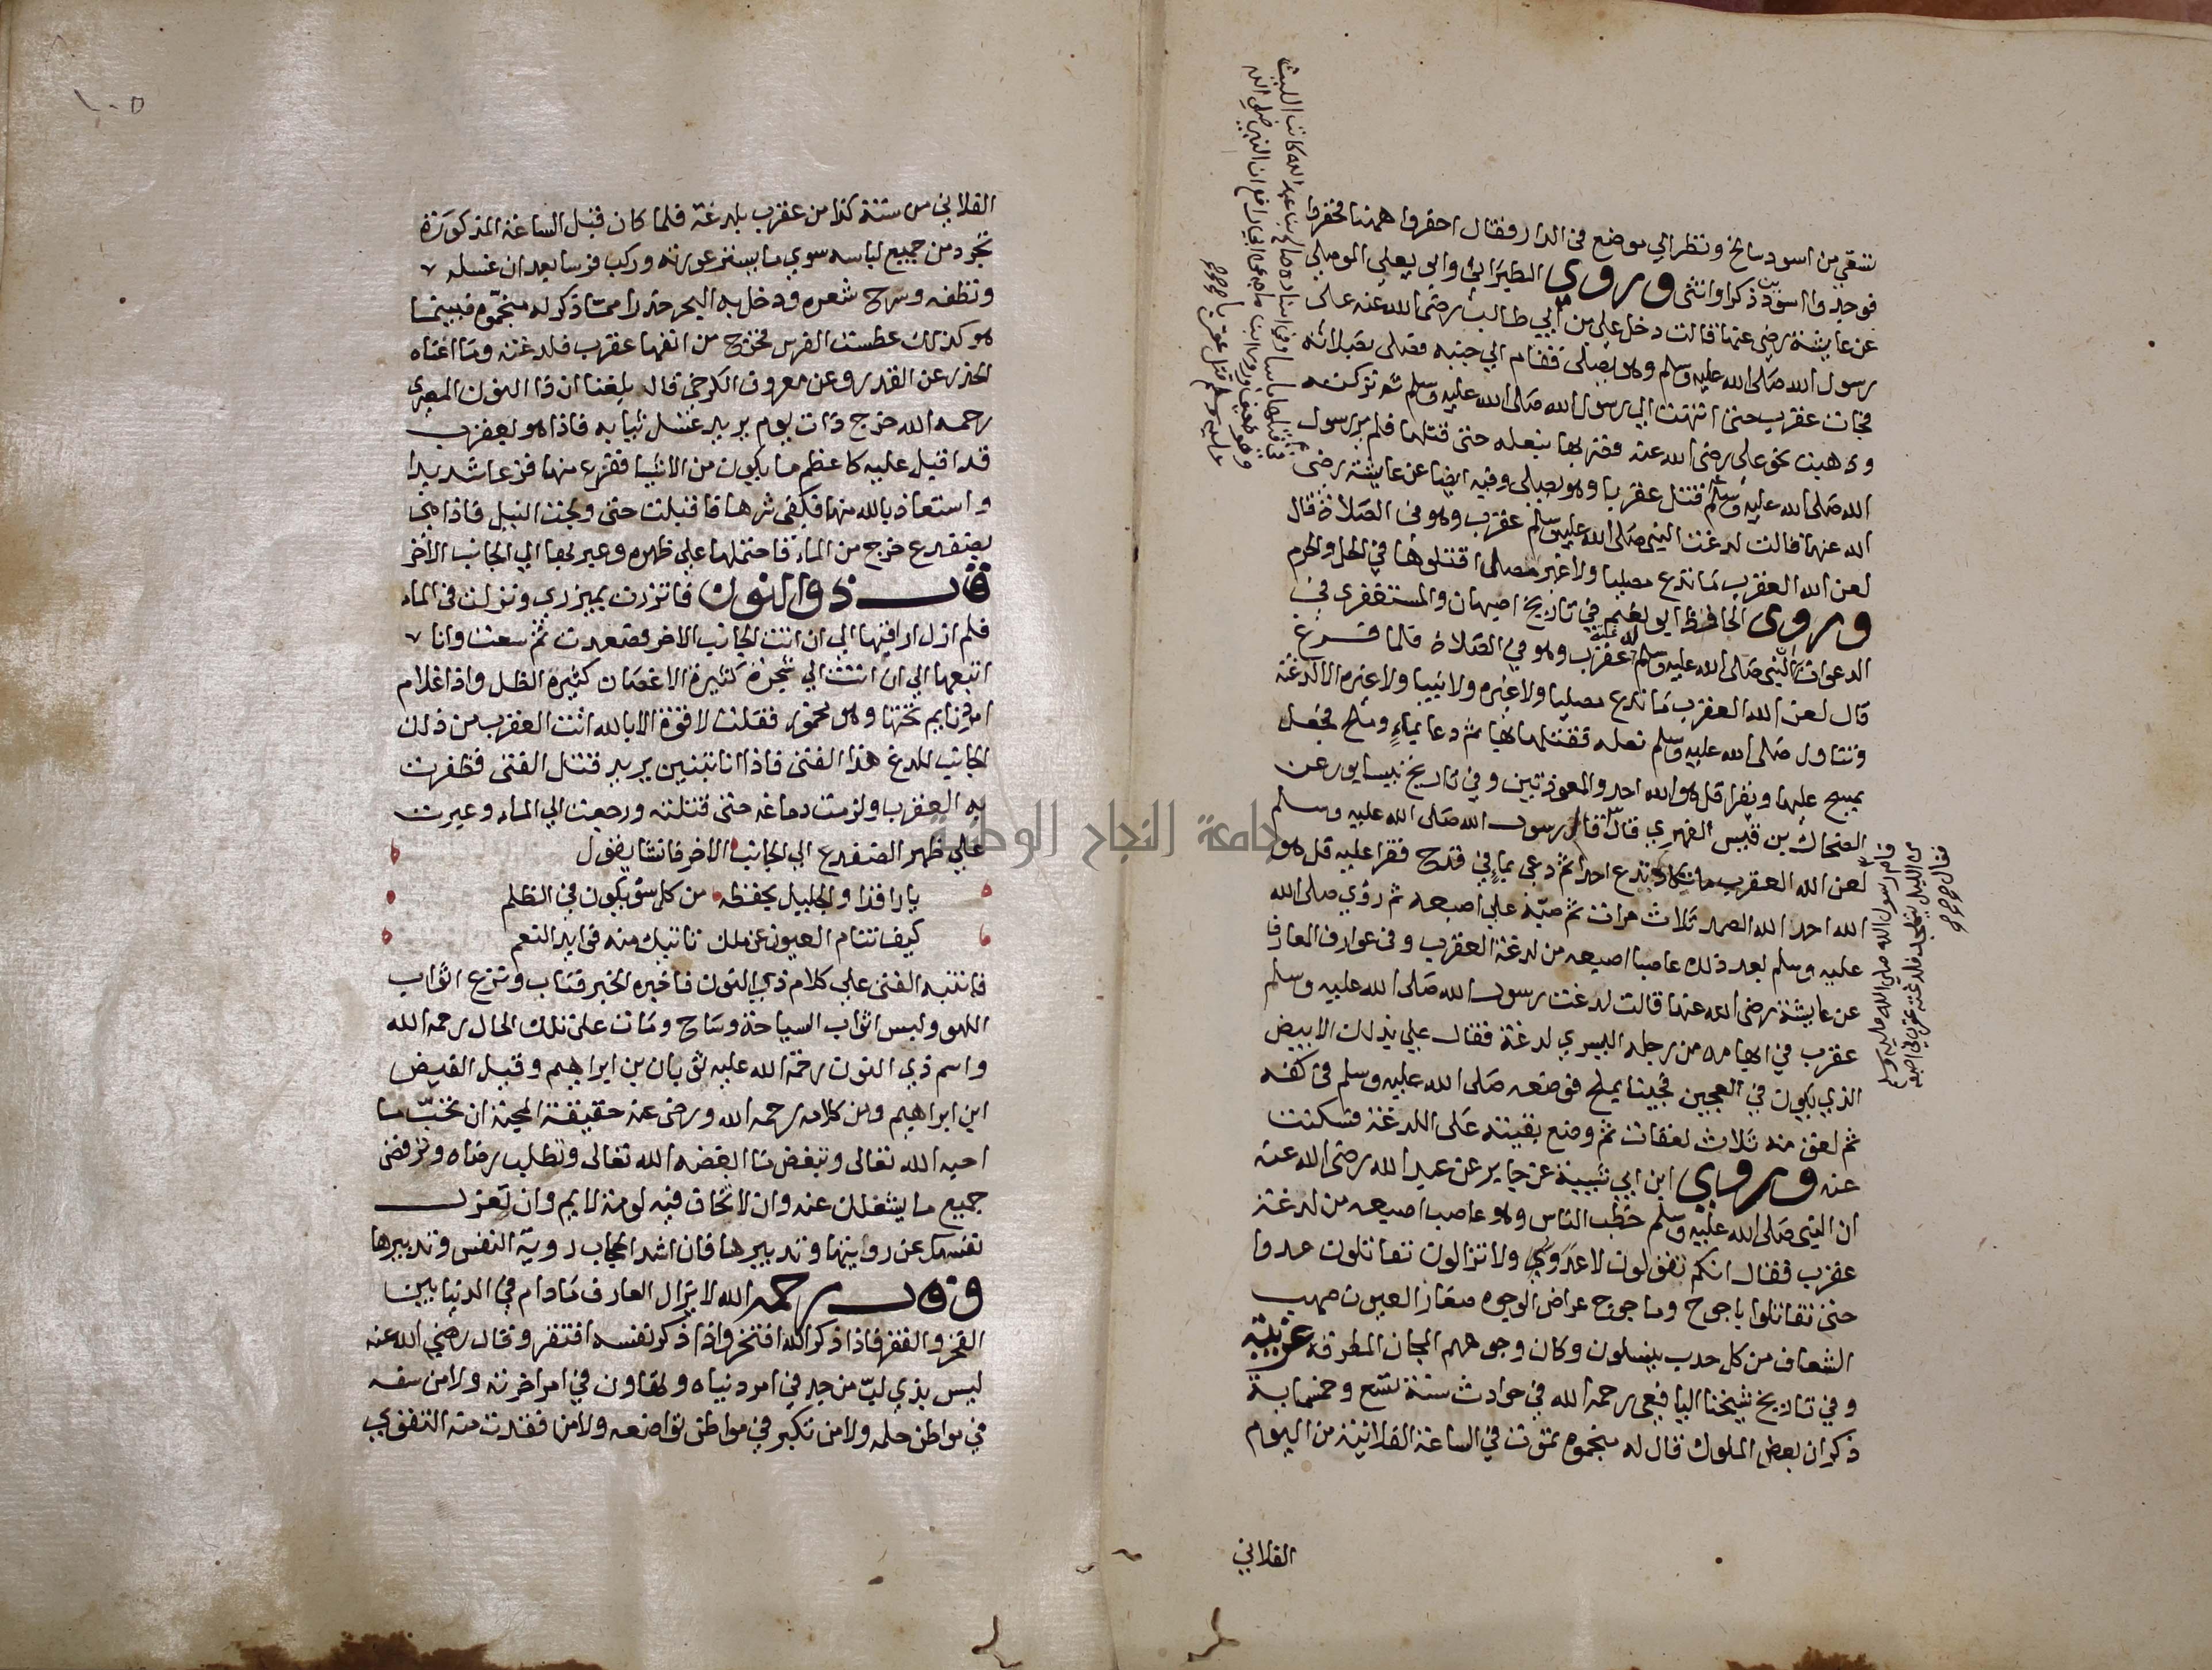 سقي من اسود سالخ ونظر الي موضع في الدار فقال احفروا ههنا فحفروا
فوجدوا اسودين ذكرا وانثى وروى الطبراني وابو يعلي الموصلي
عن عايشة رضي عنها قالت دخل علي بن ابي طالب رضي الله عنه على
رسول الله صلى الله عليه وسلم وهو يصلى فقام الي جنبه فصلى بصلاته
فجات عقرب حتى انتهت الي رسول الله صلى الله عليه وسلم ثم تركته
وذهبت نحو على رضي الله عنه فضربها بنعله حتى قتلها فلم ير رسول
الله صلى الله عليه وسلم
قتل عقربا وهو يصلى وفيه ايضا عن عايشة رضي
الله عنها قالت لدغت النبي صلى الله عليه وسلم عقرب وهو في الصلاة قال
لعن الله العقرب ما تدع مصليا ولا غير مصلى اقتلوها في الحل والحرم
وروى الحافظ ابو نعيم في تاريخ اصبهان والمستغفري في
الدعوات النبي صلى الله عليه وسلم عقرب وهو في الصلاة فلما فرغ
قال لعن الله العقرب ما تدع مصليا ولا غيره ولا نبيا ولا غيره الا لدغته
وتناول صلى الله عليه وسلم نعله فقتلها بها ثم دعا بماء وملح فجعل
يمسح عليها ويقرا قل هو الله احد والمعوذتين وفي تاريخ نيسابور عن
الضحاك بن قيس الفهري قال قام رسول الله صلى الله عليه وسلم
لعن الله العقرب ما تكاد تدع احدا ثم دعى بماء في قدح فقرا عليه قل هو
الله احد الله الصمد ثلاث مرات ثم صبه علي اصبعه ثم رؤي صلى الله
عليه وسلم بعد ذلك عاصبا اصبعه من لدغة العقرب وفي عوارف المعارف
عن عايشة رضي الله عنها قالت لدغت رسول الله صلى الله عليه وسلم
عقرب في ابهامه من رجله اليسري لدغة فقال علي بذلك الابيض
الذي يكون في العجين فجينا بملح فوضعه صلى الله عليه وسلم في كفه
ثم لعق منه ثلاث لعقات ثم وضع بقيته على اللدغة فسكنت
عنه وروي ابن ابي شيبة عن جابر عن عبد الله رضي الله عنه
ان النبي صلى الله عليه وسلم خطب الناس وهو عاصب اصبعه من لدغة
عقرب فقال انكم تقولون لا عدو ولا تزالون تقاتلون عدوا
حتى تقاتلوا ياجوج وماجوج عراض الوجوه صغار العيون صهب
الشعاف من كل حدب ينسلون وكان وجوههم المجان المطرقة غريبة
وفي تاريخ شيخنا اليافعى رحمه الله في حوادث سنة تسع وخمسماية
ذكر ان بعض الملوك قال له منجموه تموت في الساعة الفلانية من اليوم
الفلاني
فقام رسول الله صلى الله عليه وسلم
من الليل يتهجد فلدغته عقرب في اصبعه
فقال
١٠٥
الفلاني من سنة كذا من عقرب بلدغة فلما كان قبل الساعة المذكورة
تجرد من جميع لباسه سوي ما يستر عورته وركب فرسا بعد ان غسله
ونظفه وسرح شعره ودخل به البحر حذرا مما ذكر له منجموه فبينما
هو كذلك عطست الفرس فخرج من انفها عقرب فلدغته وما اغناه
الحذر عن القدر وعن معروف الكرخي قال بلغنا ان ذا النون المصري
رحمه الله خرج ذات يوم يريد غسل ثيابه فاذا هو بعقرب
قد اقبل عليه كاعظم ما يكون من الاشيا ففزع منها فزعا شديدا
واستعاذ بالله منها فكفى شرها فاقبلت حتى وافت النيل فاذا هى
بضفدع خرج من الماء فاحتملها علي ظهره وعبر بها الي الجانب الاخر
قال ذوالنون فاتزرت بميزري ونزلت في الماء
فلم ازل ارقبها الي ان اتت الجانب الاخر فصعدت ثم سعت وانا
اتبعها الي ان اتت الي شجرة كثيرة الاغصان كثيرة الظل واذا غلام
امرد نايم تحتها وهو مخمور فقلت لا قوة الا بالله اتت العقرب من ذلك
الجانب للدغ هذا الفتى فاذا انا بتنين يريد قتل الفتى فظفرت
به العقرب ولزمت دماغه حتى قتلته ورجعت الي الماء وعبرت
علي ظهر الضفدع الي الجانب الاخر فانشا يقول
يا راقدا والجليل يحفظه من كل سؤ يكون في الظلم
كيف تنام العيون عن ملك تاتيك منه فوايد النعم
فانتبه الفتى علي كلام ذي النون فاخبره الخبر فتاب ونزع اثواب
اللهو ولبس اثواب السياحة وساح ومات على تلك الحال رحمه الله
واسم ذي النون رحمة الله عليه ثوبان بن ابراهيم وقيل الفيض
ابن ابراهيم ومن كلامه رحمه الله ورضى عنه حقيقة المحبة ان تحب ما
احبه الله تعالى وتبغض ما ابغضه الله تعالى وتطلب رضاه وترفض
جميع ما يشغلك عنه وان لا تخاف فيه لومة لايم وان تعزل
نفسك عن رؤايتها وتدبيرها فان اشد الحجاب روية النفس وتدبيرها
وقال رحمه الله لا يزال العارف ما دام في الدنيا بين
الفخر والفقر فاذا ذكر الله افتخر واذا ذكر نفسه افتقر وقال رضي الله عنه
ليس بذي لب من جد في امر دنياه وتهاون في امر اخرته ولا من سفه
في مواطن حلمه ولا من تكبر في مواطن تواضعه ولا من فقدت منه التقوي
جامعة النجاح الوطنية